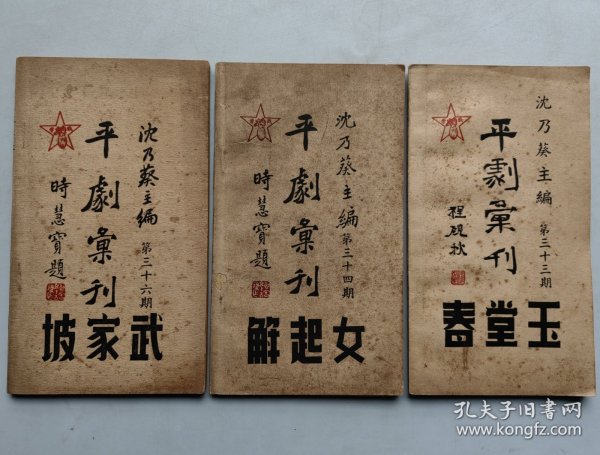 沈乃葵主編
平劇彙刊
時慧寶題
第三十六期
武家坡
沈乃葵主編
平劇彙刊
時慧寶題
第三十四期
女起解
沈乃葵主編
平劇彙刊
程硯秋
第三十三期
玉堂春
孔夫子旧书网
www.kongfz.com